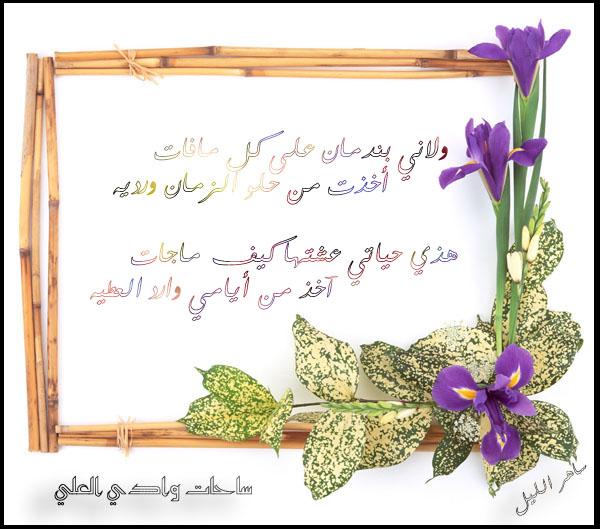 ولاني بندمان على كل مافات
أخذت من حلو الزمان ورديه
هذي حياتي عشتها كيف ماجات
آخذ من أيامي وارد العطيه
ساحات وادي العلي
ساهر الليل